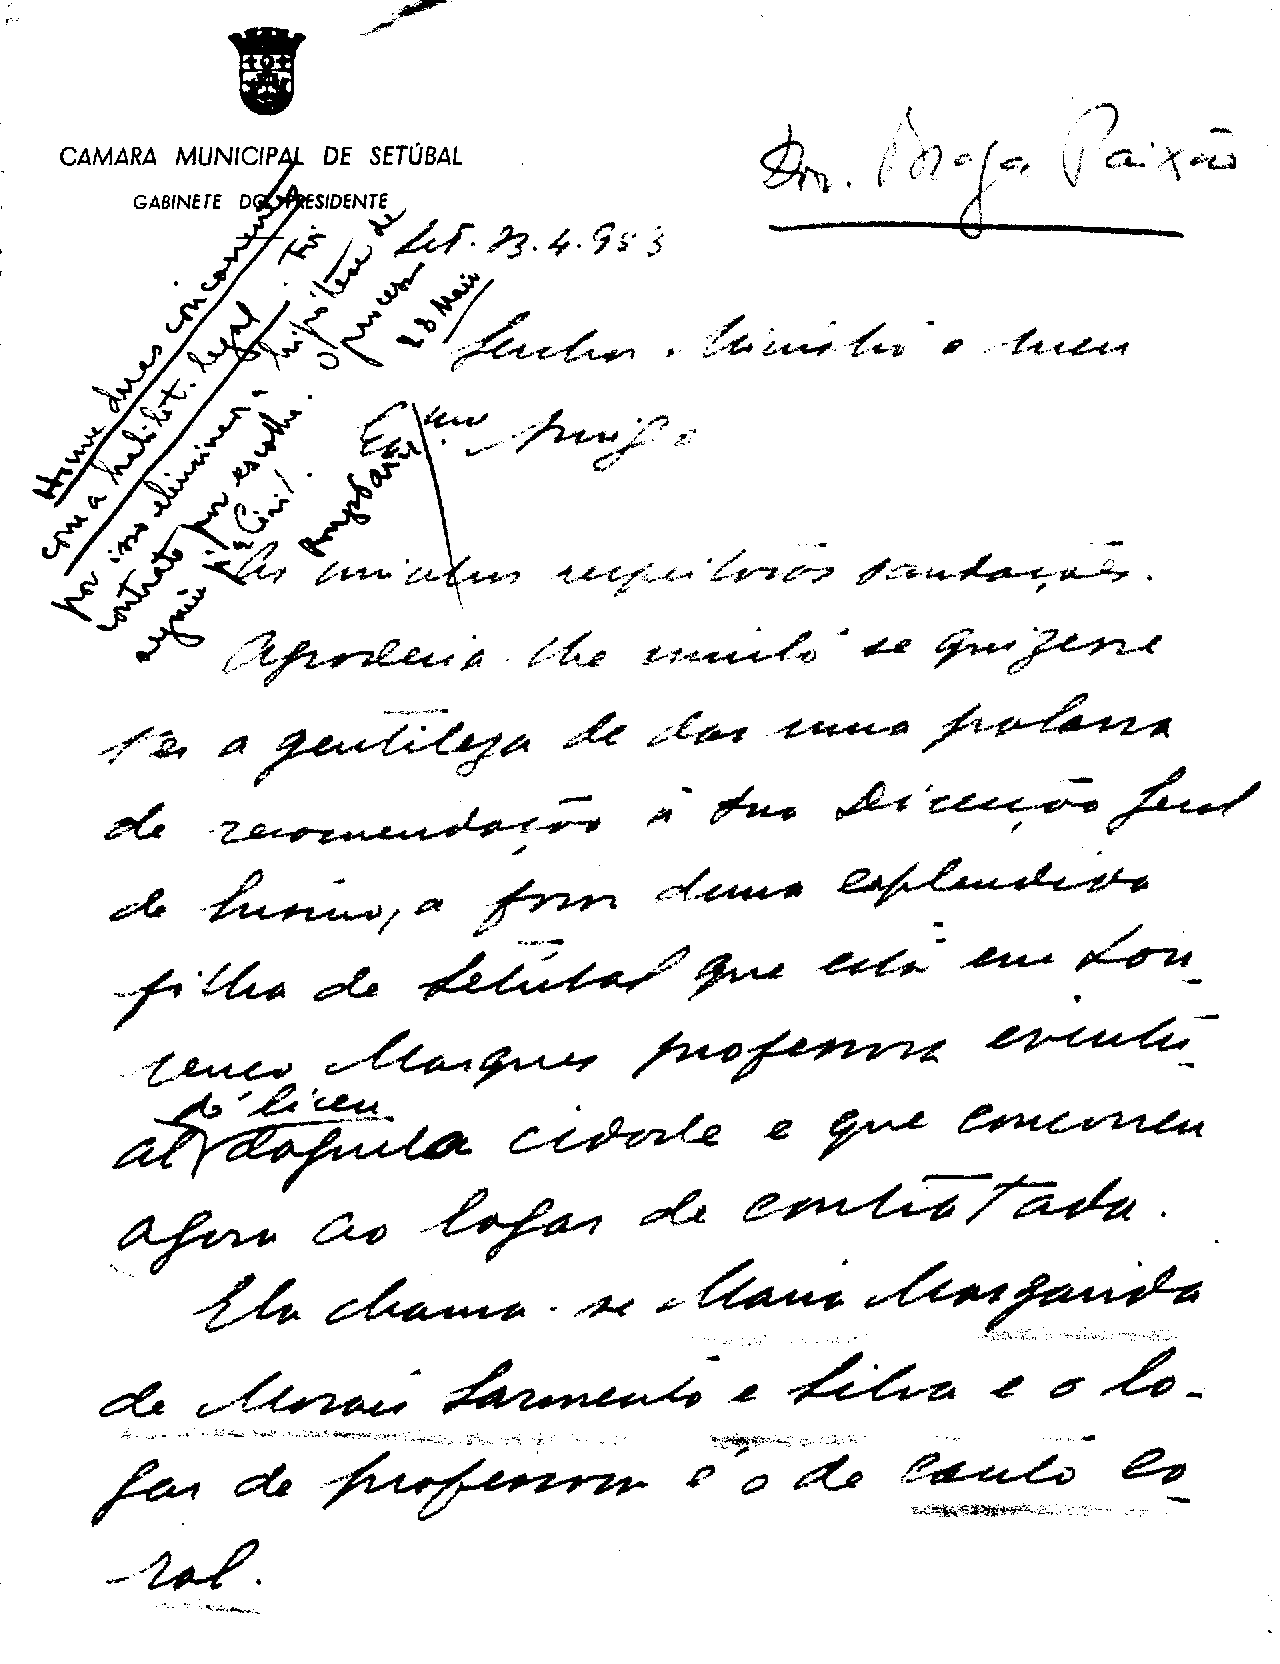 CAMARA MUNICIPAL DE SETÚBAL
GABINETE DO PRESIDENTE
Dr. Braga Paixão
Set. 23.4.953
Houve duas concorrentes
com a habilit. legal. Foi
por isso eliminada a hipótese de
contrato por escolha. O processo
seguiu 28 Maio
Senhor Ministro e meu
Exmo Amigo
As minhas respeitosas saudações.
Agradecia-lhe muito se quizesse
ter a gentileza de dar uma palavra
de recomendação à sua Direcção Geral
de Ensino, a favor duma esplendida
filha de Setúbal que está em Lou-
renço Marques professora eventu-
al do liceu daquela cidade e que concorreu
agora ao logar de contratada.
Ela chama-se Maria Margarida
de Morais Sarmento e Silva e o lo-
gar de professora é o de canto co-
ral.